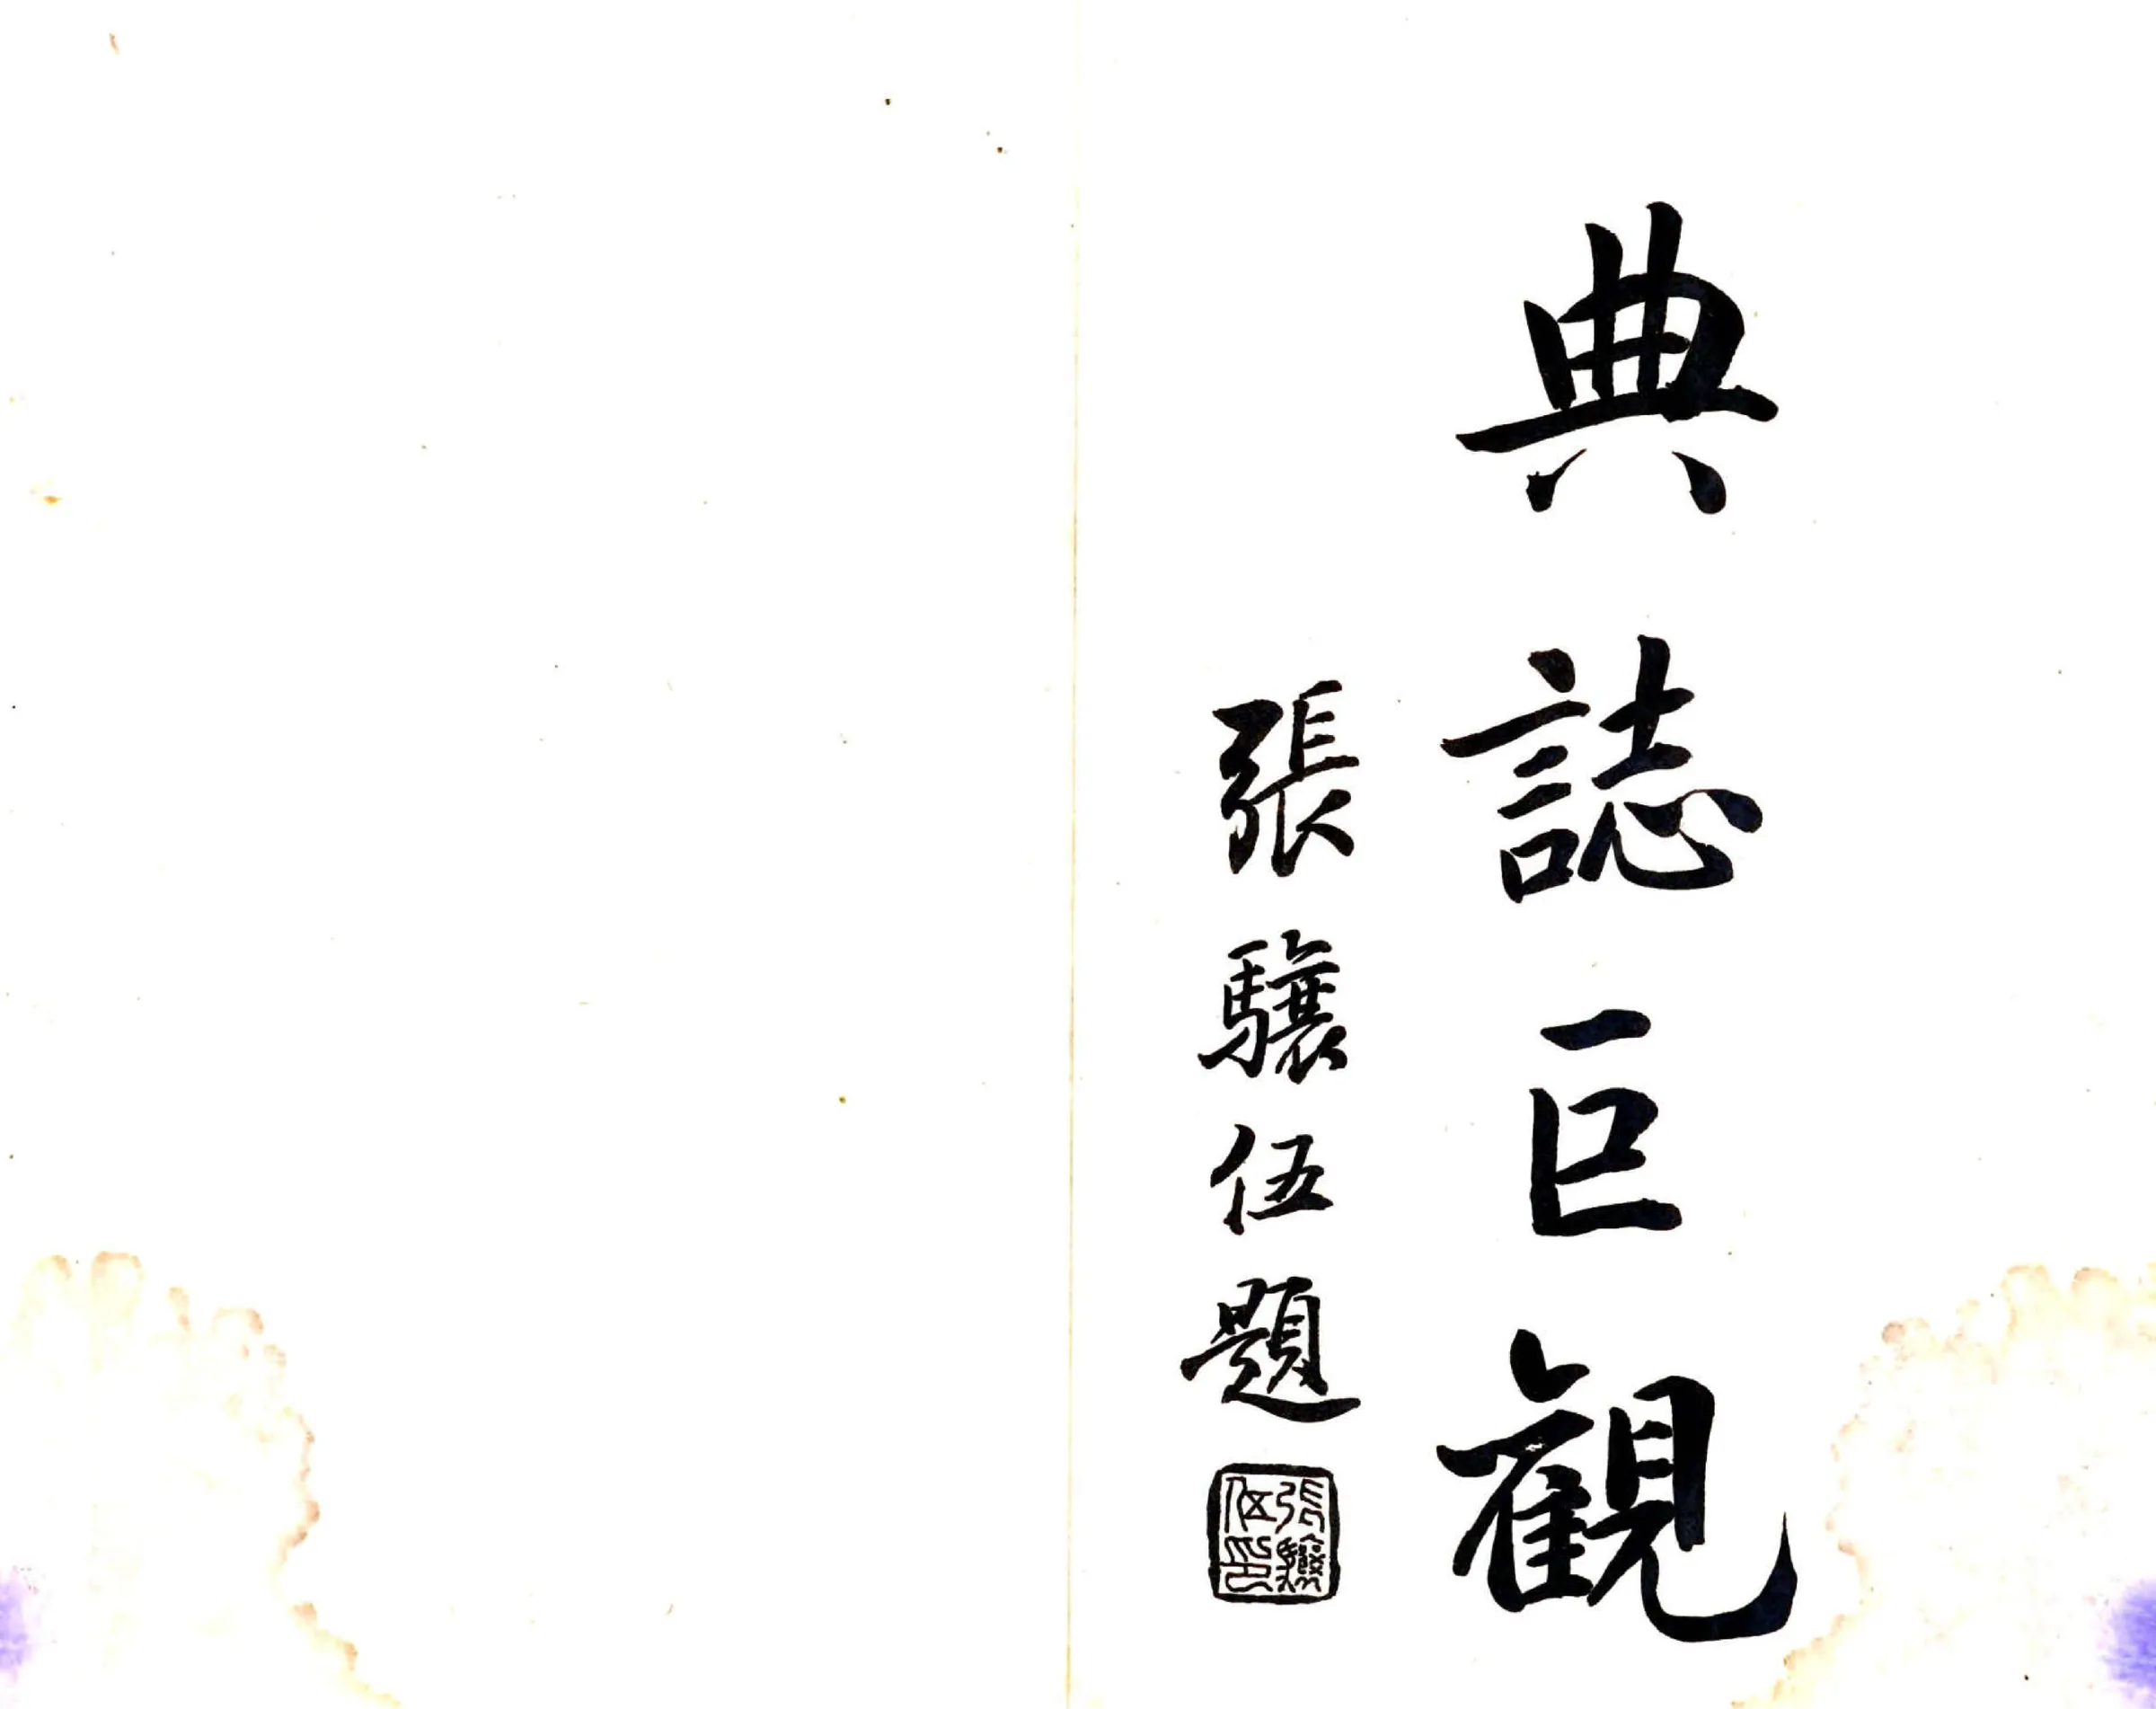 典誌巨観
張驤伍題
張驤伍印